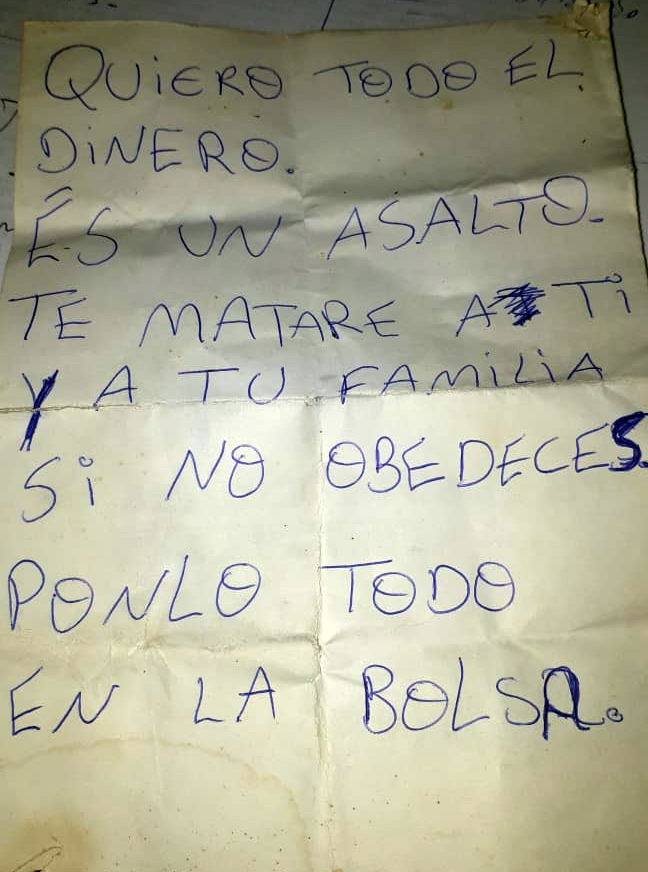 QUiERO TODO EL
DiNERO.
ÉS UN ASALTO.
TE MATARE A Ti
Y A TU FAMiLiA
Si NO OBEDECES.
PONLO TODO
EN LA BOLSA.